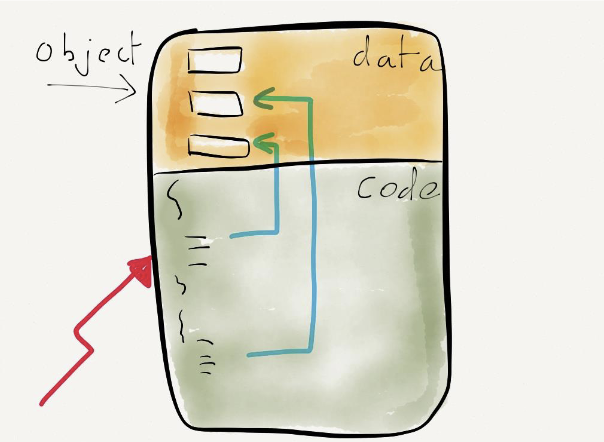 object
data
code